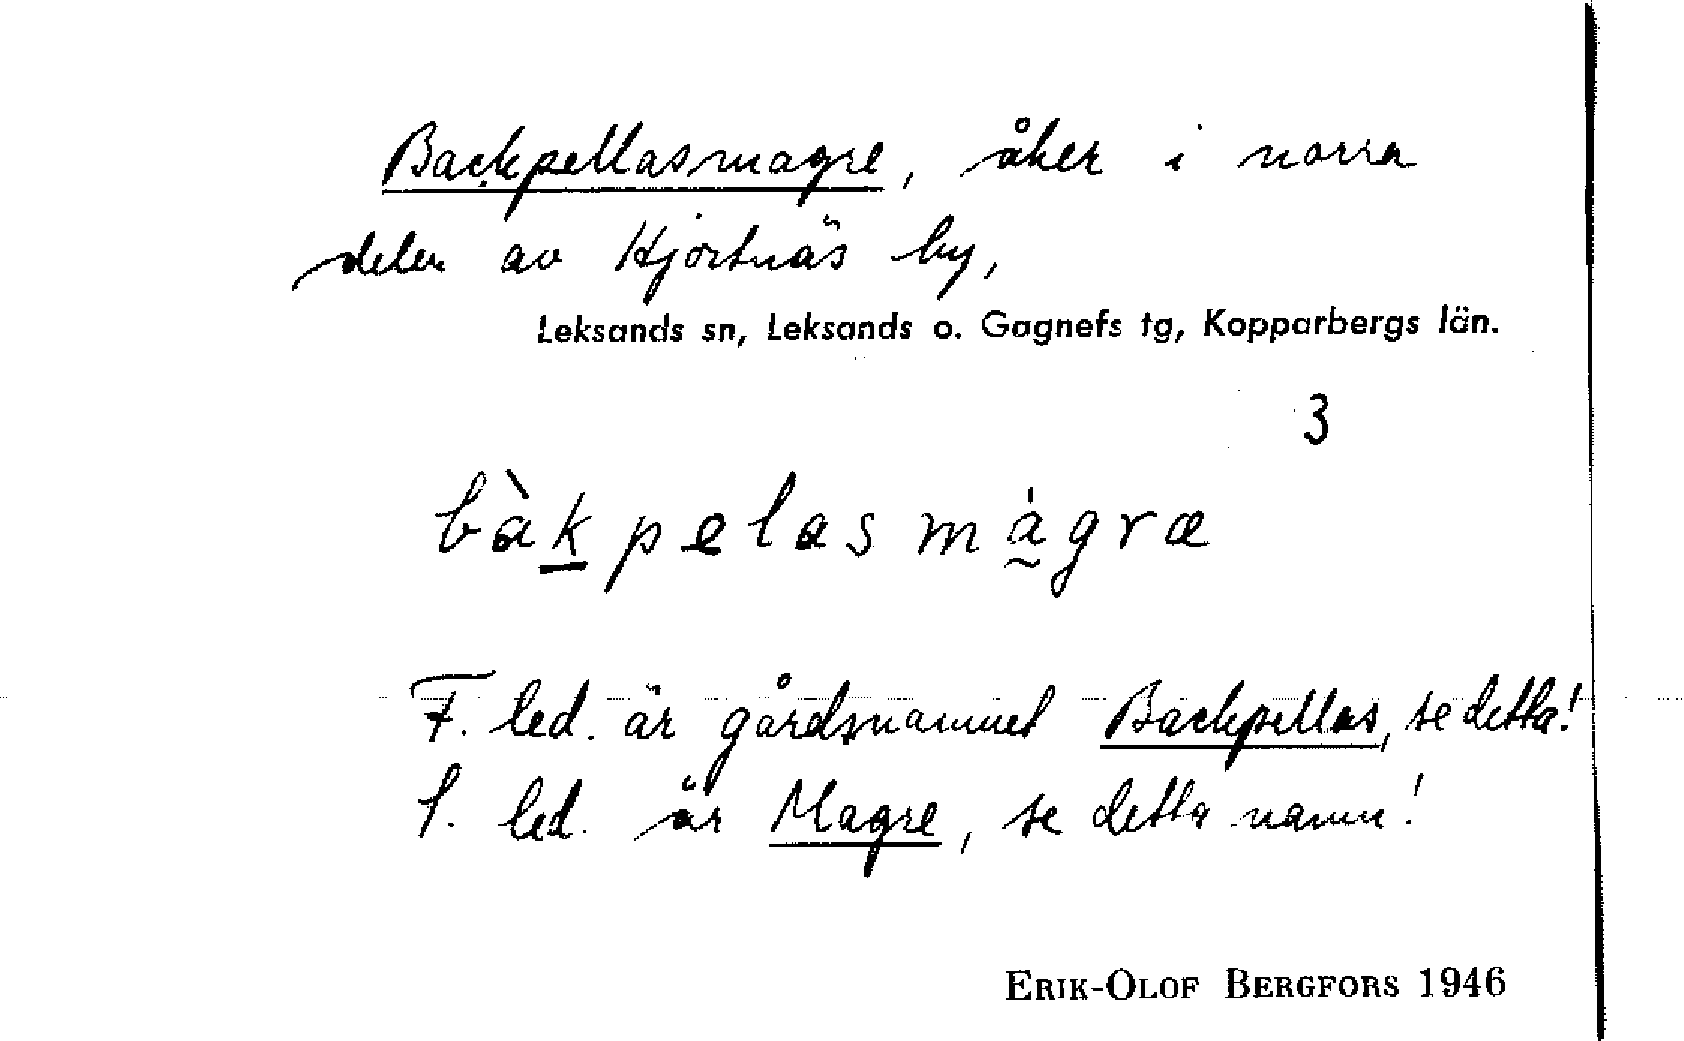 Backpellasmagre, åker i norra
delen av Hjortnäs by,
Leksands sn, Leksands o. Gagnefs tg, Kopparbergs län.
3
bàk̲pelasma̰̍græ
F. led. är gårdsnamnet Backpellas, se detta!
S. led. är Magre, se detta namn!
ERIK-OLOF BERGFORS 1946